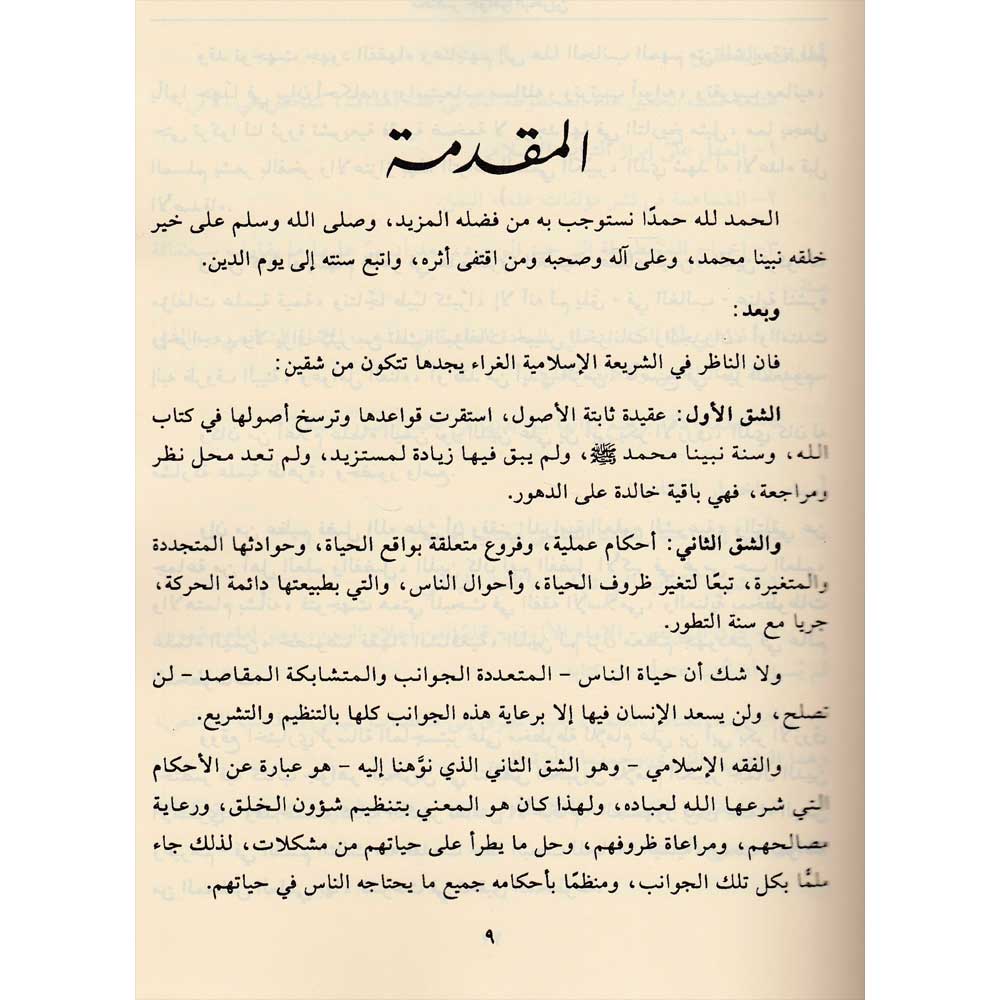 المقدمة
الحمد لله حمدًا نستوجب به من فضله المزيد، وصلى الله وسلم على خير
خلقه نبينا محمد، وعلى آله وصحبه ومن اقتفى أثره، واتبع سنته إلى يوم الدين.
وبعد:
فان الناظر في الشريعة الإسلامية الغراء يجدها تتكون من شقين:
الشق الأول: عقيدة ثابتة الأصول، استقرت قواعدها وترسخ أصولها في كتاب
الله، وسنة نبينا محمد ﷺ، ولم يبق فيها زيادة لمستزيد، ولم تعد محل نظر
ومراجعة، فهي باقية خالدة على الدهور.
والشق الثاني: أحكام عملية، وفروع متعلقة بواقع الحياة، وحوادثها المتجددة
والمتغيرة، تبعًا لتغير ظروف الحياة، وأحوال الناس، والتي بطبيعتها دائمة الحركة،
جريا مع سنة التطور.
ولا شك أن حياة الناس – المتعددة الجوانب والمتشابكة المقاصد – لن
تصلح، ولن يسعد الإنسان فيها إلا برعاية هذه الجوانب كلها بالتنظيم والتشريع.
والفقه الإسلامي – وهو الشق الثاني الذي نوَّهنا إليه – هو عبارة عن الأحكام
التي شرعها الله لعباده، ولهذا كان هو المعني بتنظيم شؤون الخلق، ورعاية
مصالحهم، ومراعاة ظروفهم، وحل ما يطرأ على حياتهم من مشكلات، لذلك جاء
ملمًّا بكل تلك الجوانب، ومنظمًا بأحكامه جميع ما يحتاجه الناس في حياتهم.
٩